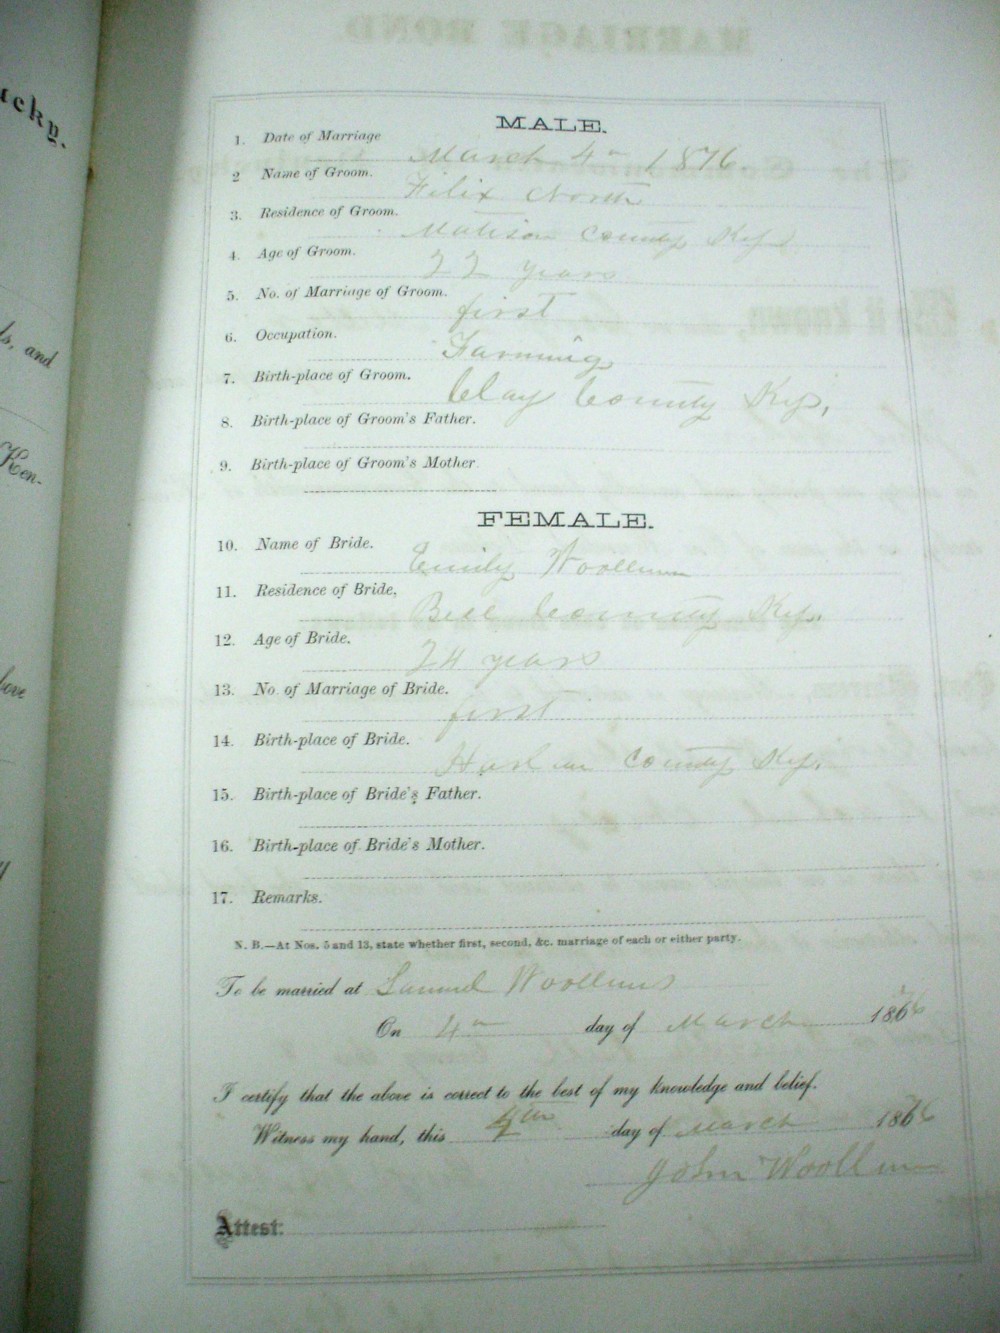 ucky.
ls, and
Ken-
MALE.
1. Date of Marriage
March 4th 1876
2 Name of Groom.
Filix North
3. Residence of Groom.
Matison County Ky,
4. Age of Groom.
22 years
5. No. of Marriage of Groom.
first
6. Occupation.
Farming
7. Birth-place of Groom.
Clay County Ky,
8. Birth-place of Groom's Father.
9. Birth-place of Groom's Mother
FEMALE.
10. Name of Bride.
Emily Woollum
11. Residence of Bride,
Bell County Ky.
12. Age of Bride.
24 years
13. No. of Marriage of Bride.
first
14. Birth-place of Bride.
Harlan County Ky.
15. Birth-place of Bride's Father.
16. Birth-place of Bride's Mother.
17. Remarks.
N. B.—At Nos. 5 and 13, state whether first, second, &c. marriage of each or either party.
To be married at Samuel Woollums
On 4th day of March 1876
I certify that the above is correct to the best of my knowledge and belief.
Witness my hand, this 4th day of March 1876
John Woollum
Attest: